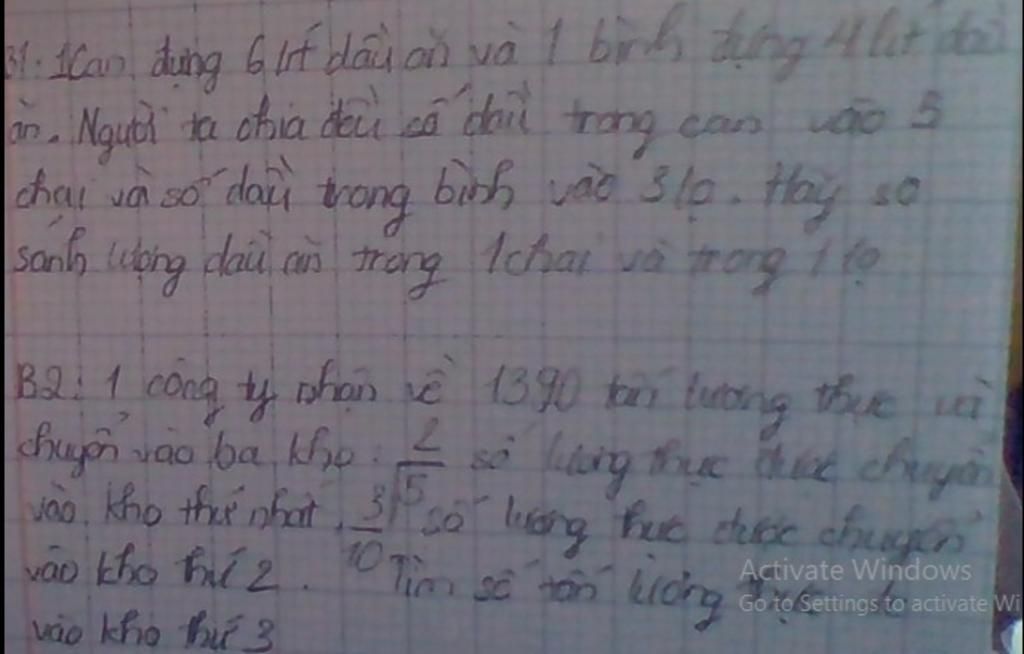 B1. 1 Can đựng 6 lít dầu ăn và 1 bình đựng 4 lít dầu
ăn. Người ta chia đều số dầu trong can vào 5
chai và số dầu trong bình vào 3 lọ. Hãy so
sánh lượng dầu ăn trong 1 chai và trong 1 lọ
B2: 1 công ty nhận về 1390 tấn lương thực và
chuyển vào ba kho. 2/5 số lương thực được chuyển
vào kho thứ nhất, 3/10 số lương thực được chuyển
vào kho thứ 2. Tìm số tấn lương thực
vào kho thứ 3
Activate Windows
Go to Settings to activate Wi